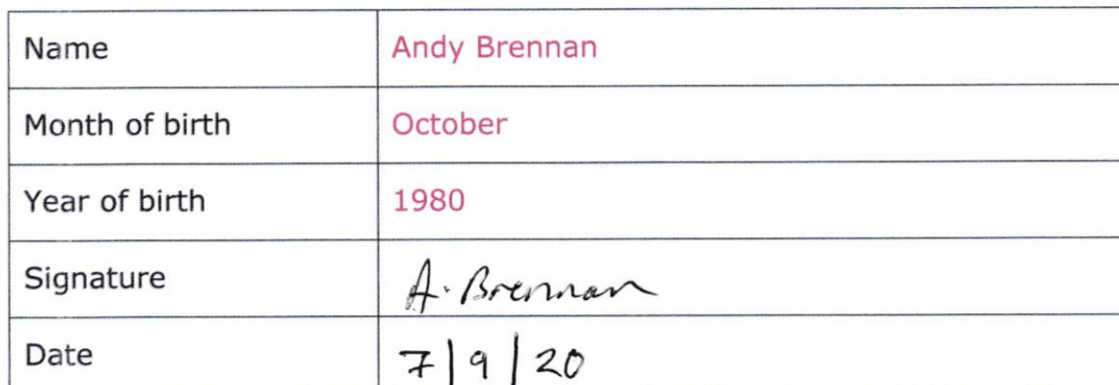 Name Andy Brennan
Month of birth October
Year of birth 1980
Signature A. Brennan
Date 7/9/20